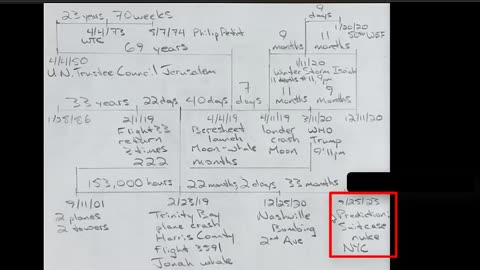 23 years 70 weeks
9 days
4/4/73 8/7/74 Philip Petit
WTC
1/20/20
50th WEF
69 years
9 months 11 months
4/4/50
U.N. Trustee Council Jerusalem
1/11/20
Winter Storm Isaiah
11 deaths # 11 9pm
33 years 22 days 40 days 7 days 11 months 9 months
1/28/86 2/1/19 4/4/19 4/11/19 3/11/20 12/11/20
Flight 33 Beresheet lander WHO
return launch crash Trump
3 times Moon-whale Moon 9:11pm
222 months
153,000 hours 22 months 2 days 33 months
9/11/01 2/23/19 12/25/20 9/25/23
2 planes Trinity Bay Nashville Prediction:
2 towers plane crash Bombing Suitcase
Harris County 2nd Ave nuke
Flight 3591 NYC
Jonah whale